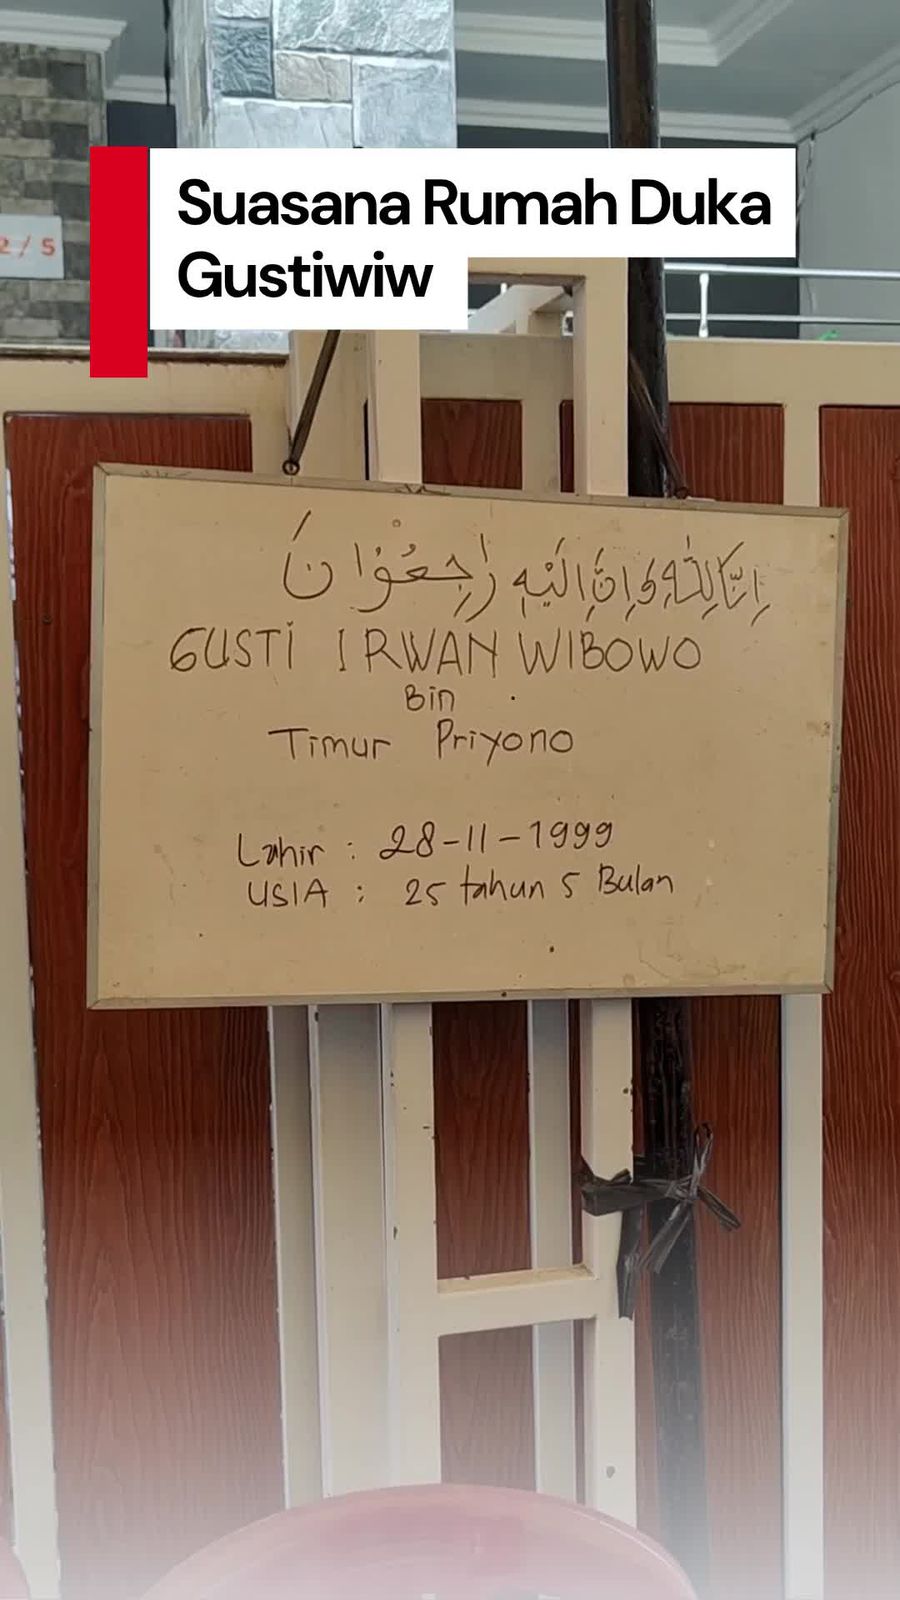 Suasana Rumah Duka
Gustiwiw
2/5
إِنَّا لِلّٰهِ وَإِنَّا إِلَيْهِ رَاجِعُوْانَ
GUSTI IRWAN WIBOWO
Bin
Timur Priyono
Lahir : 28-11-1999
USIA : 25 tahun 5 Bulan